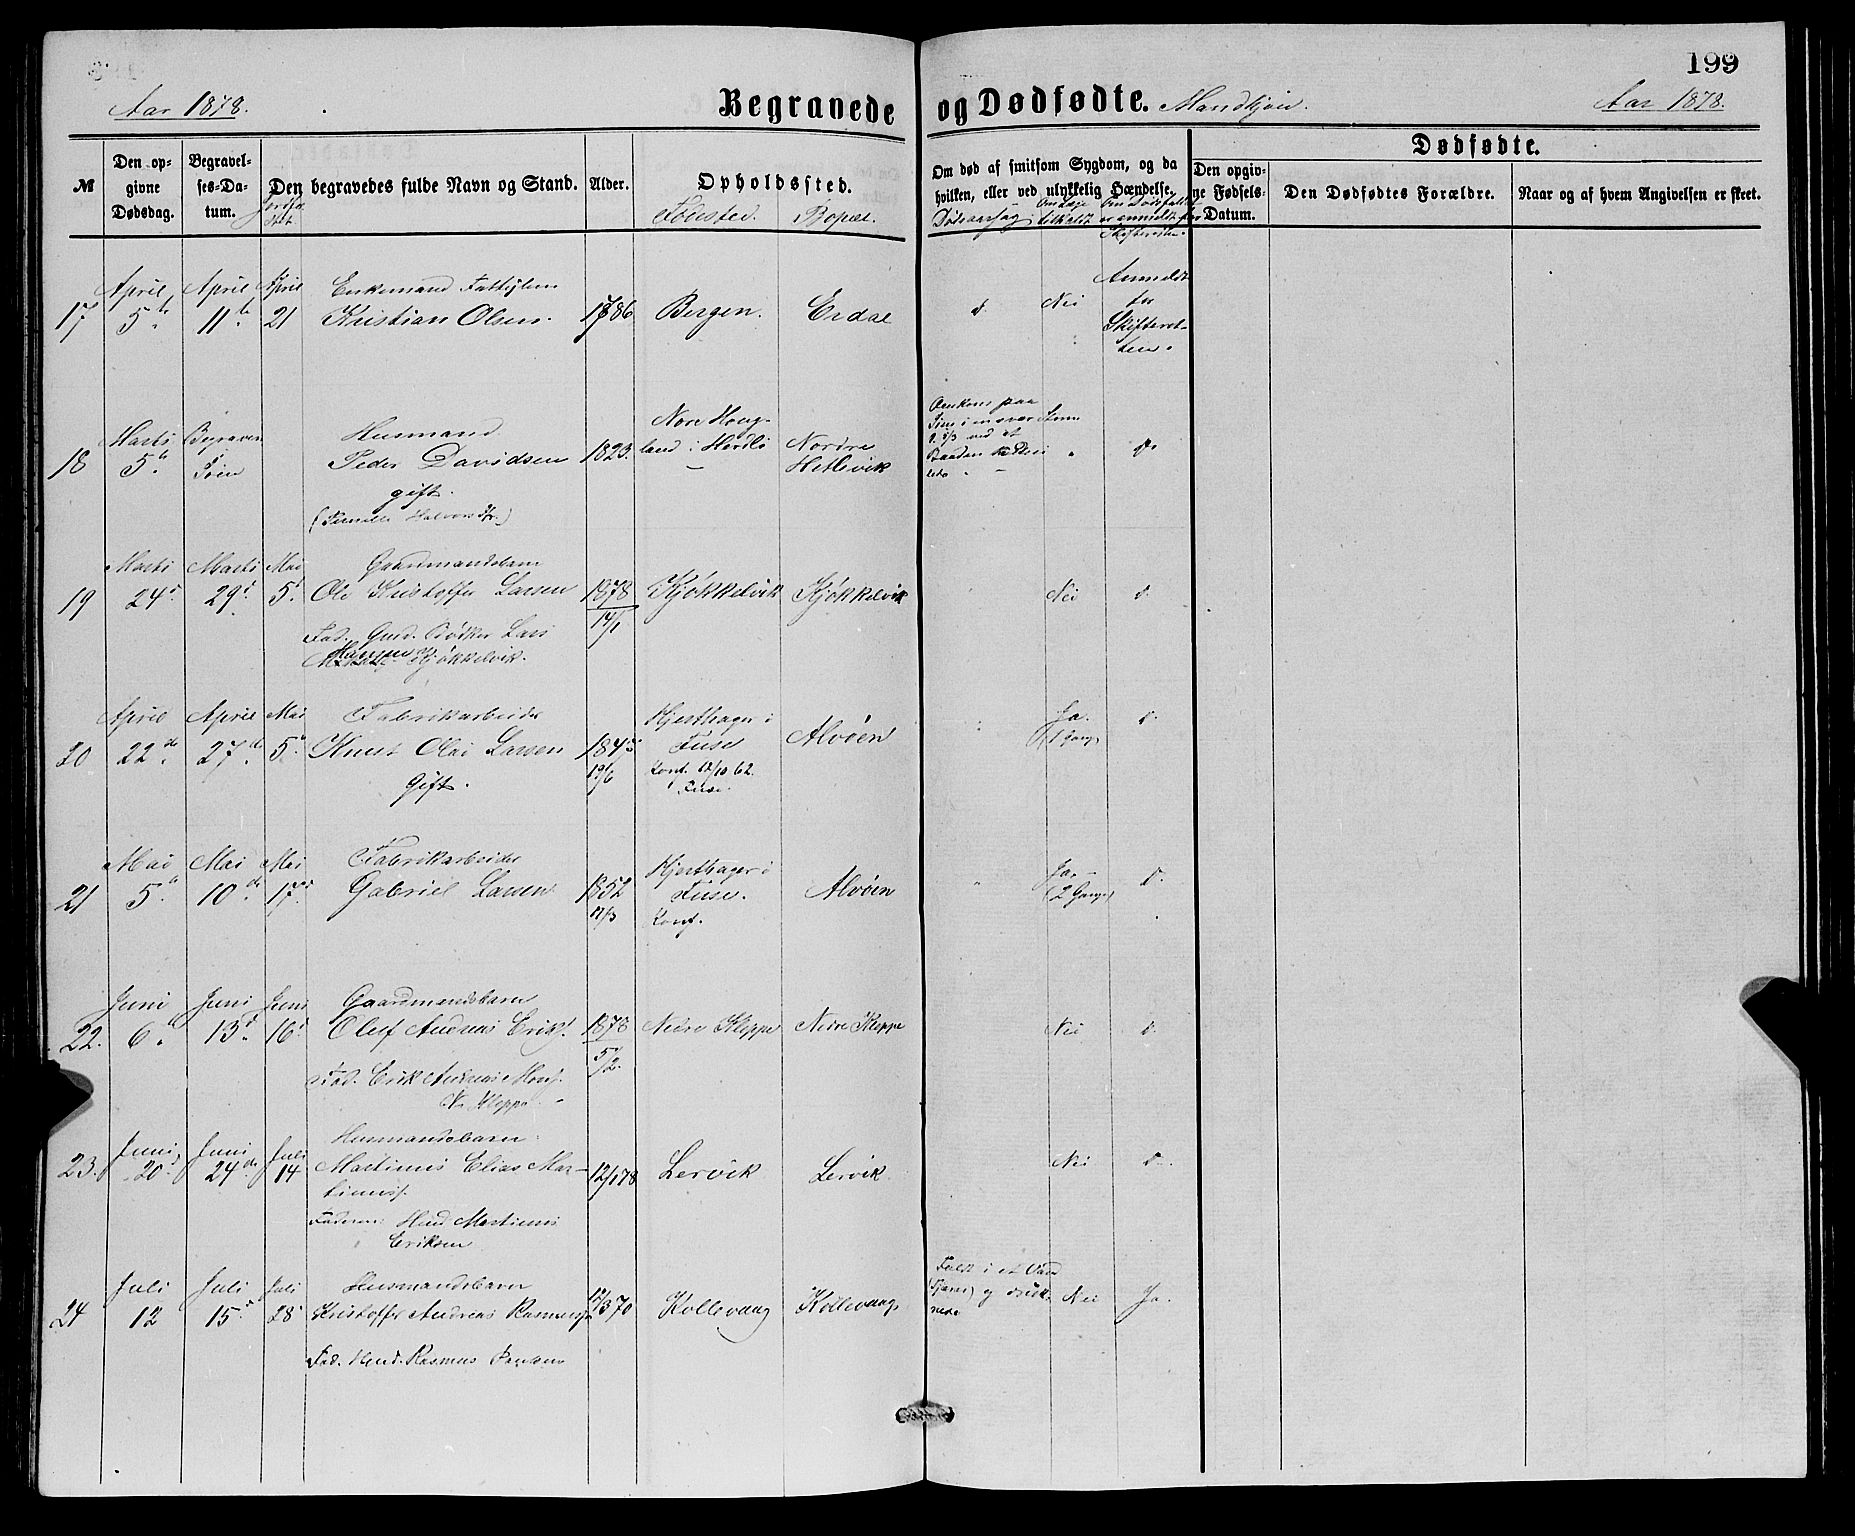 199
Aar 1878.
Begravede og Dødfødte. Mandkjøn.
Aar 1878.
№
Den opgivne Dødsdag.
Begravelses-Datum.
Jordfæstet
Den begravedes fulde Navn og Stand.
Alder.
Opholdssted.
Fødested. Bopæl.
Om død af smitsom Sygdom, og da hvilken, eller ved ulykkelig Hændelse.
Dødsaarsag
Om Læge tilkaldt
Om Dødsfaldet er anmeldt for Skifteretten.
Dødfødte.
Den opgivne Fødsels-Datum.
Den Dødfødtes Forældre.
Naar og af hvem Angivelsen er skeet.
17 April 5te April 11te April 21
Enkemand Fattiglem
Kristian Olsen.
1786 Bergen. Erdal
d. Nei Anmeldt for Skifteretten.
18 Marts 5te Begraven i Søen
Husmand
Peder Davidsen
gift.
(Pernille Halvorsdtr.)
1823. Nore Hougland i Herdlø
Nordre Hetlevik
Omkom paa Søen i en svær Storm d. 5/3 ved at Baaden
" d.
19 Marts 24de Marts 29de Mai 5te
Gaardmandsbarn
Ole Kristoffer Larsen
Fad. Grd. Bødker Lars Hansen Kjøkkelvik.
1878 14/1 Kjøkkelvik Kjøkkelvik
Nei d.
20 April 22de April 27de Mai 5te
Fabrikarbeider
Knut Olai Larsen
Gift.
1845 19/6
Hjerthager i Fuse
Konf. 12/10 62.
Fuse.
Alvøen
" Ja. (1 Gang) d.
21 Mai 5te Mai 10de Mai 17de
Fabrikarbeider
Gabriel Larsen
1852 17/3
Hjerthager i Fuse.
Konf.
Alvøen
" Ja. (2 Gange) d.
22. Juni 6te Juni 13de Juni 16de
Gaardmandsbarn
Oluf Andreas Eriks.
Fad. Erik Andreas Mons.
N. Kleppe
1878 5/2. Nedre Kleppe Nedre Kleppe
Nei d.
23. Juni 20 Juni 24de Juli 14
Husmandsbarn
Martinus Elias Martinuss.
Faderen: Husd. Martinus Eriksen
12/1 78 Lervik Lervik.
Nei d.
24 Juli 12 Juli 15de Juli 28
Husmandsbarn
Kristoffer Andreas Rasmuss.
Fad. Husd. Rasmus
12/3 70 Kollevaag Kollevaag
Faldt i et Vand (Tjærn) og druknede
Nei Ja.